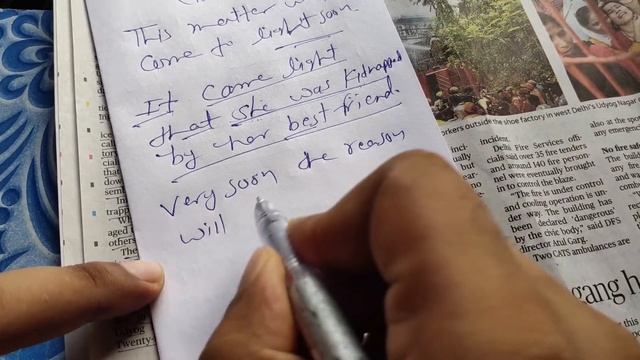 This matter
Come to light soon
It came light
that she was kidnapped
by her best friend.
Very soon the reason
will
orkers outside the shoe factory in west Delhi's Udyog Nagar
incident.
Delhi Fire Services offi-
cials said over 35 fire tenders
and around 140 fire person-
nel were eventually brought
in to control the blaze.
"The fire is under control
and cooling operation is un-
der way. The building has
been declared 'dangerous'
by the civic body," said DFS
director Atul Garg.
Two CATS ambulances are
also at the spo
any emergen
No fire safe
gang h
this
ice
In
trapp
aged
others
The
Udyog
Twenty-